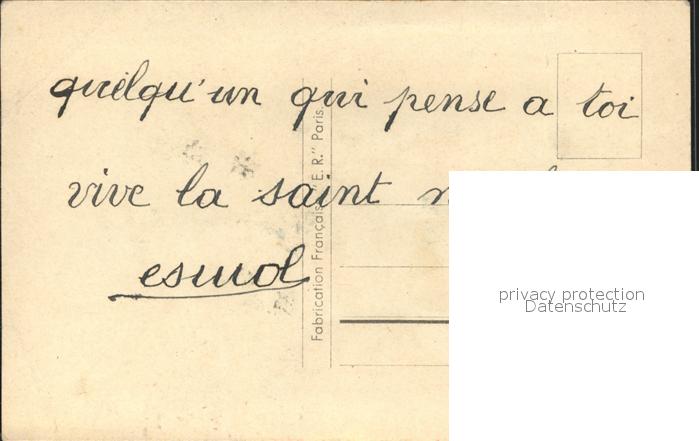 quelqu'un qui pense a toi
vive la saint
esmol
Fabrication Française "E. R." Paris
privacy protection
Datenschutz